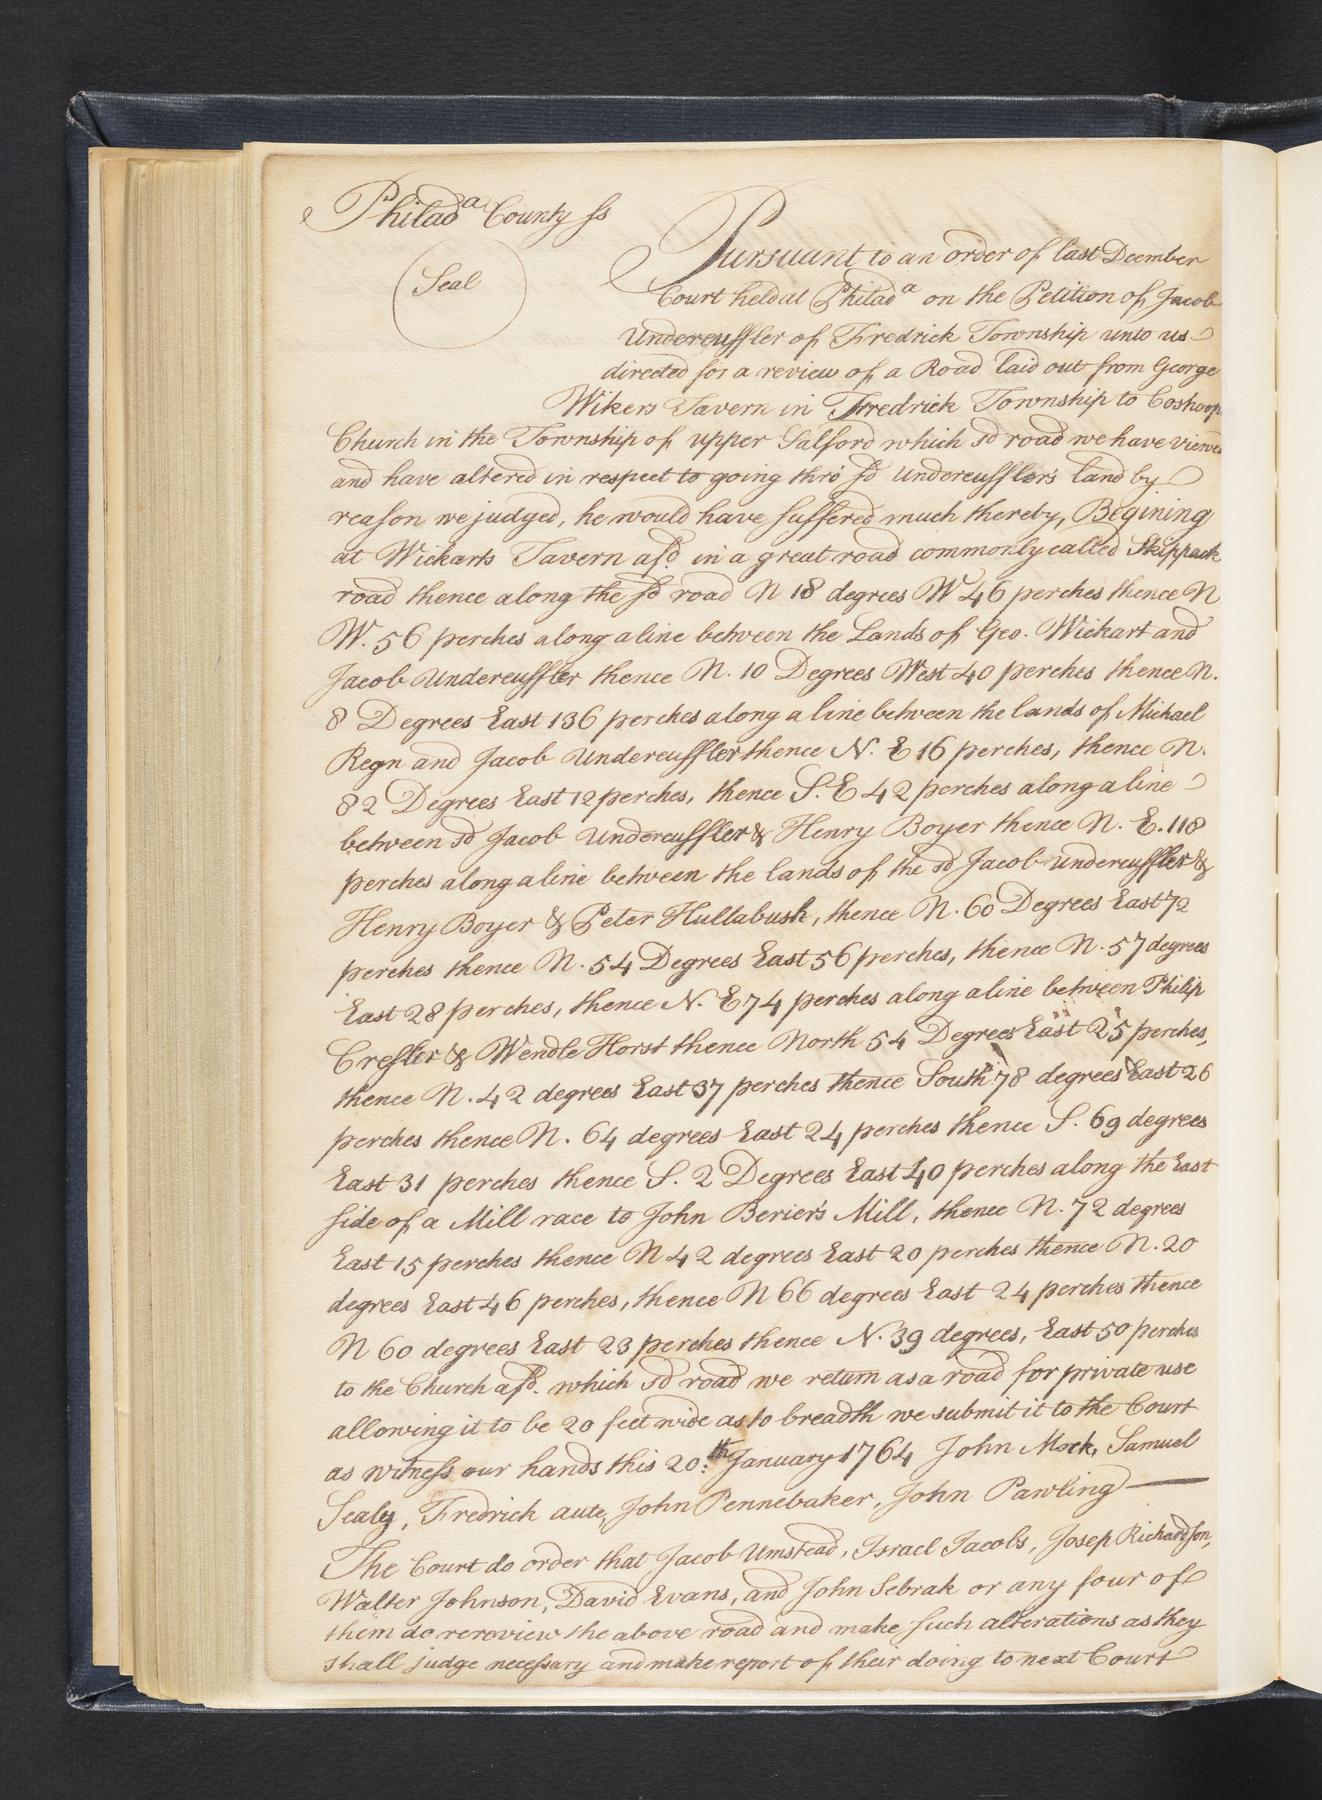 Philad<sup>a</sup> County ss
Seal
Pursuant to an order of last December
Court held at Philad<sup>a</sup> on the Petition of Jacob
Undercuffler of Fredrick Township unto us
directed for a review of a Road laid out from George
Wikers Tavern in Fredrick Township to Coshoop
Church in the Township of upper Salford which sd road we have viewed
and have altered in respect to going thro' sd Undercuffler's land by
reason we judged, he would have suffered much thereby, Begining
at Wickarts Tavern afd. in a great road commonly called Skippack
road thence along the sd road N 18 degrees W 46 perches thence N
W. 56 perches along a line between the Lands of Geo. Wickart and
Jacob Undercuffler thence N. 10 Degrees West 40 perches thence N.
8 Degrees East 136 perches along a line between the lands of Michael
Regn and Jacob Undercuffler thence N. E 16 perches, thence N.
82 Degrees East 12 perches, thence S. E 42 perches along a line
between sd Jacob Undercuffler & Henry Boyer thence N. E. 118
perches along a line between the lands of the sd Jacob undercuffler &
Henry Boyer & Peter Hullabush, thence N. 60 Degrees East 72
perches thence N. 54 Degrees East 56 perches, thence N. 57 degrees
East 28 perches, thence N. E 74 perches along a line between Philip
Cressler & Wendle Horst thence North 54 Degrees East 25 perches,
thence N. 42 degrees East 37 perches thence South 78 degrees East 26
perches thence N. 64 degrees East 24 perches thence S. 69 degrees
East 31 perches thence S. 2 Degrees East 40 perches along the East
side of a Mill race to John Berier's Mill, thence N. 72 degrees
East 15 perches thence N 42 degrees East 20 perches thence N. 20
degrees East 46 perches, thence N 66 degrees East 24 perches thence
N 60 degrees East 23 perches thence N. 39 degrees, East 50 perches
to the Church afd. which sd road we return as a road for private use
allowing it to be 20 feet wide as to breadth we submit it to the Court
as witness our hands this 20.<sup>th</sup> January 1764 John Mock, Samuel
Sealy, Fredrick aute, John Pennebaker, John Pawling
The Court do order that Jacob Umstead, Israel Jacobs, Josep Richardson,
Walter Johnson, David Evans, and John Sebrak or any four of
them do rereview the above road and make such alterations as they
shall judge necessary and make report of their doing to next Court